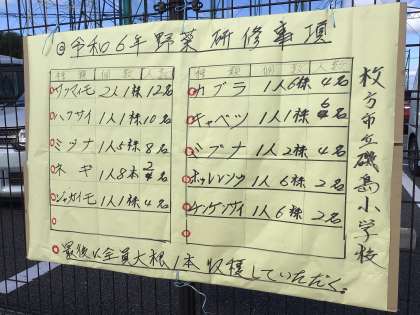 ◎令和6年野菜研修事項
種類 個数 人数
サツマイモ 2人1株 12名
ハクサイ 1人1株 10名
ミツナ 1人5株 8名
ネギ 1人8本 2名
ジャガイモ 1人1株 4名
種類 個数 人数
カブラ 1人6株 4名
キャベツ 1人1株 6名
ミブナ 1人2株 4名
ホウレンソウ 1人6株 2名
チンゲンサイ 1人6株 2名
最後に全員大根1本収穫していただく。
枚方市立磯島小学校